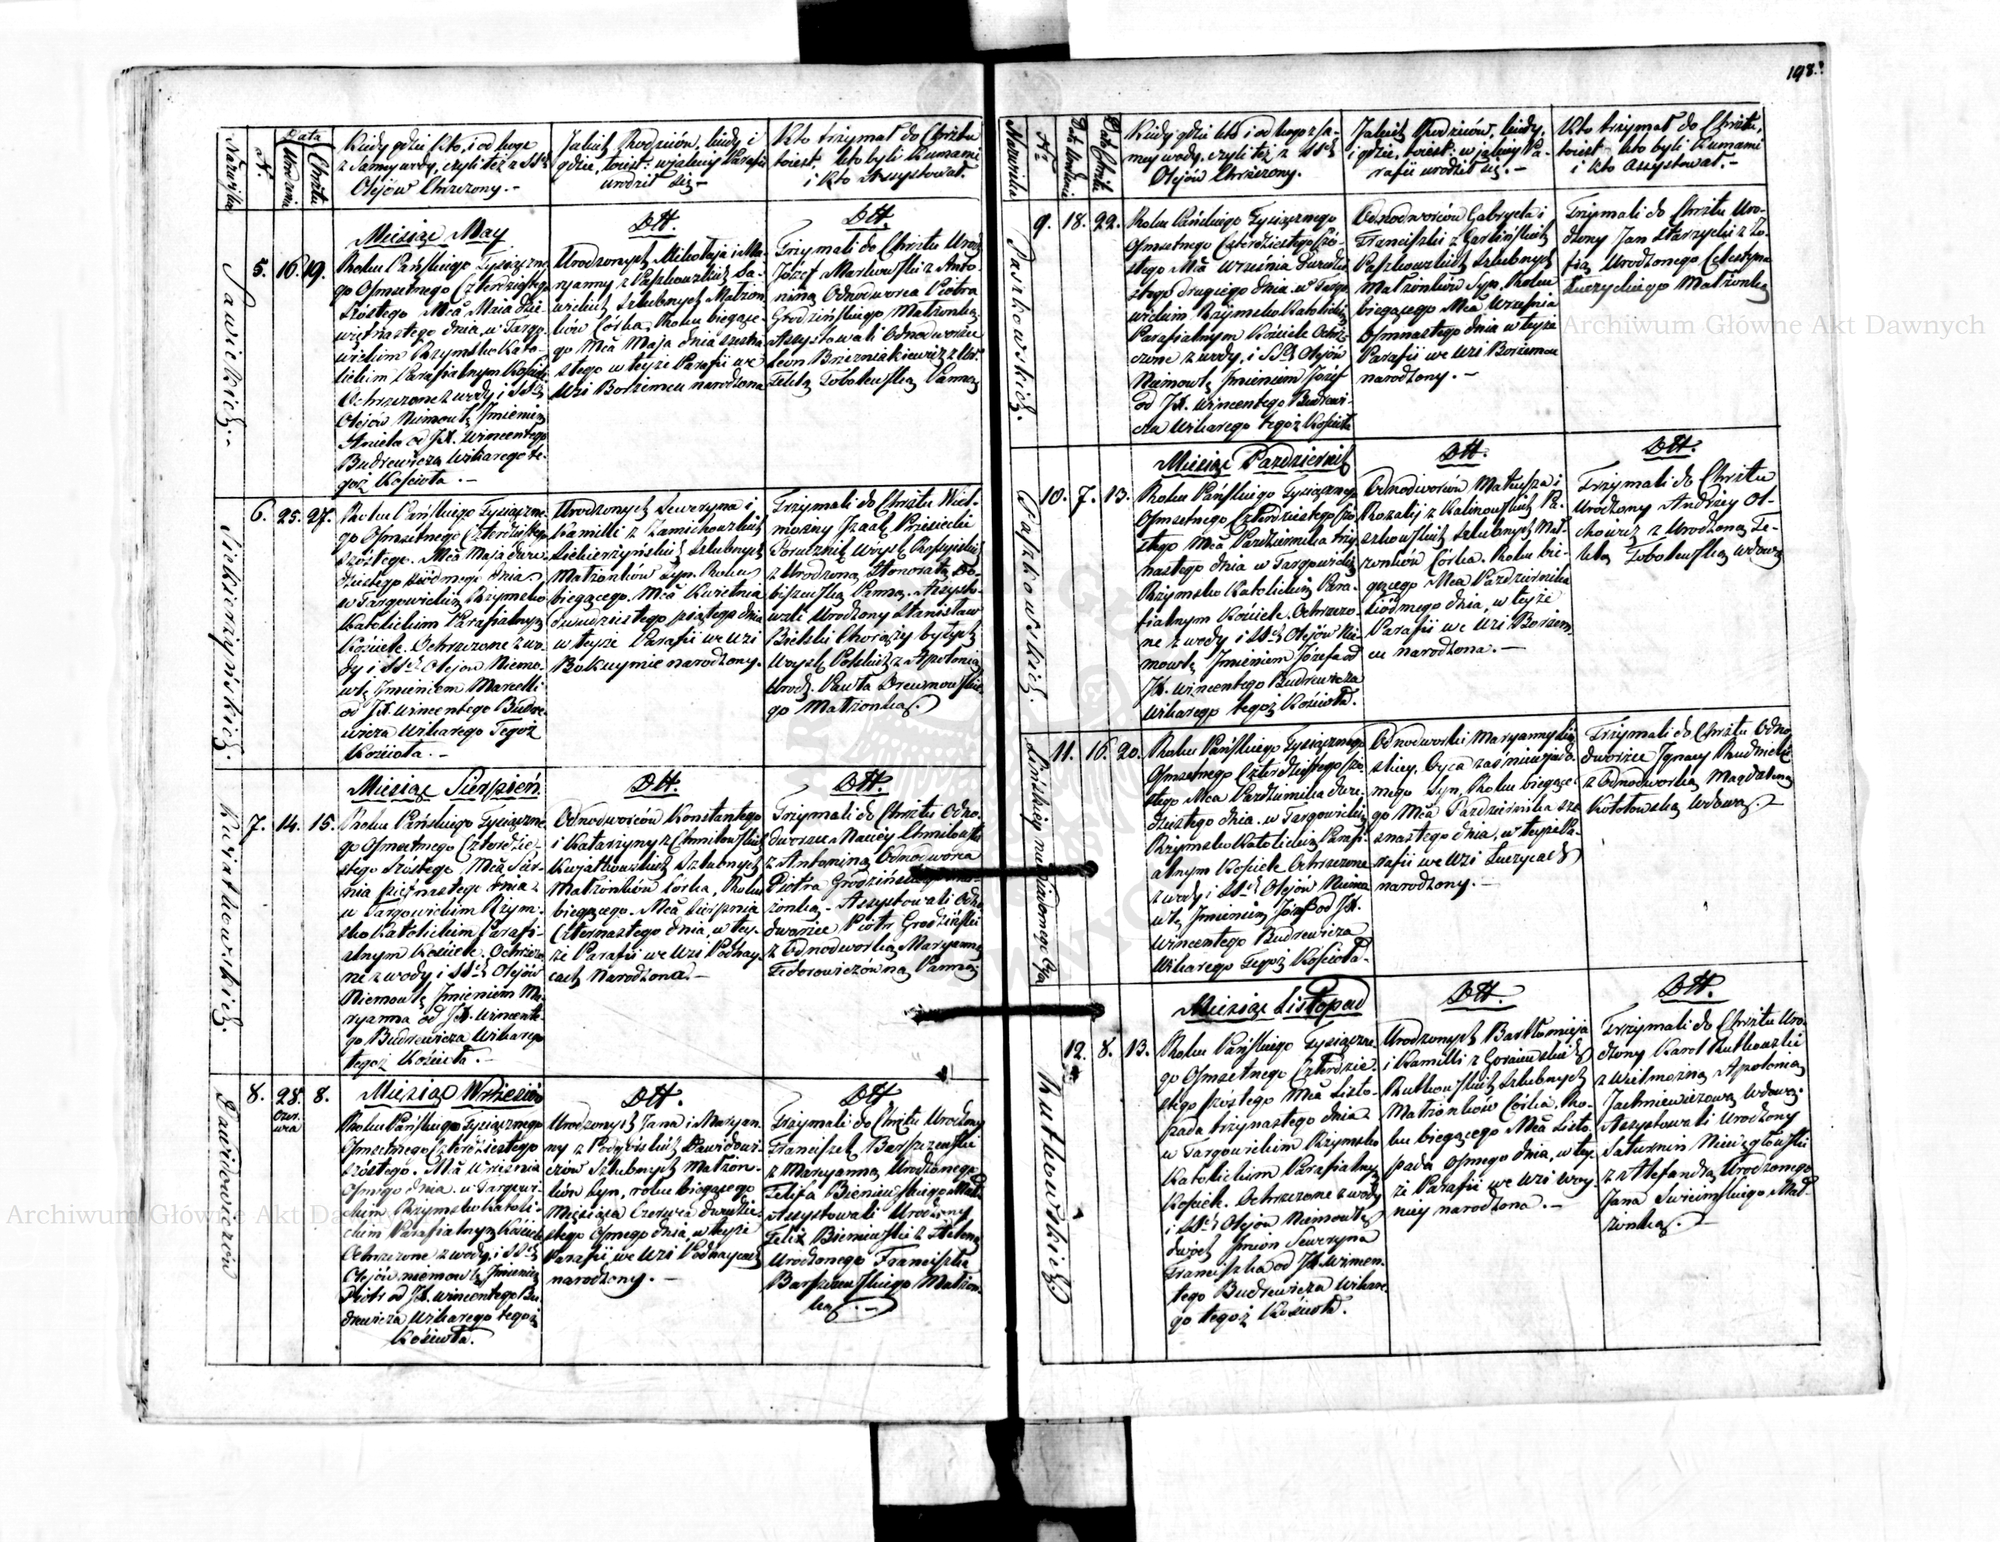 198.
Nazwiska
N.
Data
Urodzenia
Chrztu
Kiedy gdzie kto, i od kogo
z samej wody, czyli też z SSch
Olejów Chrzczony. -
Jakich Rodziców, kiedy i
gdzie, toiest: w jakiey Parafii
urodził się -
Kto trzymał do Chrztu
toiest, kto byli Kumami
i kto Assystował.
Sawickich. -
5.
16.
19.
Miesiąc May
Roku Pańskiego Tysiączne-
go Ośmsetnego Czterdziestego
Szóstego Mca Maia Dzie-
więtnastego dnia, w Targo-
wickim Rzymsko Kato-
lickim Parafialnym Kościele
Ochrzczone z wody i SSch
Olejów Niemowlę Jmieniem
Aniela od JX. Wincentego
Budrewicza Wikarego te-
goż Kościoła. -
Dtt.
Urodzonych Mikołaja i Ma-
ryanny z Paszkowskich Sa-
wickich Szlubnych Małżon-
ków Córka, Roku bieżące-
go Mca Maja dnia szesna-
stego w teyże Parafii we
Wsi Borzemcu narodzona
Dtt.
Trzymali do Chrztu Urodz.
Józef Markowski z Anto-
niną Odnodworca Piotra
Grodzińskiego Małżonką
Assystowali Odnodworzec
Leon Brzezniakiewicz z Ur.
Teklą Sobolewską Panną
Siekierzyńskich.
6.
25.
27.
Roku Pańskiego Tysiączne-
go Ośmsetnego Czterdziestego
szóstego. Mca Maja dwu-
dziestego siódmego dnia
w Targowickim Rzymsko
Katolickim Parafialnym
Kościele. Ochrzczone z wo-
dy i SSch Olejow Niemo-
wlę Jmieniem Marcelli
od JX. Wincentego Budre-
wicza Wikarego Tegoż
Kościoła. -
Urodzonych Seweryna i
Kamilli z
Siekierzyńskich Szlubnych
Małżonków Syn. Roku
bieżącego. Mca Kwietnia
dwudziestego piątego dnia
w teyże Parafii we Wsi
Bokuymie narodzony.
Trzymali do Chrztu Wiel-
możny Izaak
Porucznik Woysk Rossyiskich
z Urodzoną Honoratą
Panną. Assysto-
wali Urodzony Stanisław
Bielski Chorąży byłych
Woysk Polskich z Apolonią
Urodz. Pawła Drewnowskie-
go Małżonką.
Kwiatkowskich.
7.
14.
15.
Miesiąc Sierpień
Roku Pańskiego Tysiączne-
go Ośmsetnego Czterdzie-
stego Szóstego Mca Sier-
pnia piętnastego dnia
w Targowickim Rzym-
sko Katolickim Parafi-
alnym Kościele. Ochrzczo-
ne z wody i SSch Olejów
Niemowlę Jmieniem Ma-
ryanna od JX. Wincente-
go Budrewicza Wikarego
tegoż Kościoła. -
Dtt.
Odnodworców Konstantego
i Katarzyny z Chmilowskich
Kwiatkowskich Szlubnych
Małżonków Córka, Roku
bieżącego. Mca Sierpnia
Czternastego dnia, w tey-
że Parafii we Wsi Podhay-
cach Narodzona. -
Dtt.
Trzymali do Chrztu Odno-
dworzec Maciey Chmilowski
z Antoniną Odnodworca
Piotra Grodzińskiego Mał-
żonką - Assystowali Odno-
dworzec Piotr Grodziński
z Odnodworką Maryanną
Fedorowiczówną Panną
Dawidowiczów
8.
28.
Czer-
wca
8.
Miesiąc Wrzesień
Roku Pańskiego Tysiącznego
Ośmsetnego Czterdziestego
szóstego. Mca Września
Osmego dnia. w Targowi-
ckim Rzymsko Katoli-
ckim Parafialnym Kościele
Ochrzczone z wody, i SSch
Olejów niemowlę Jmieniem
Piotr od JX. Wincentego Bu-
drewicza Wikarego tegoż
Kościoła.
Dtt.
Urodzonych Jana i Maryan-
ny z Podgórskich Dawidowi-
czów Szlubnych Małżon-
ków Syn, roku bieżącego
Miesiąca Czerwca dwudzie-
stego Osmego dnia, w teyże
Parafii we Wsi Podhaycach
narodzony. -
Dtt
Trzymali do Chrztu Urodzony
Franciszek Barszczewski
z Maryanną Urodzonego
Felixa Bieniewskiego Mał.
Assystowali Urodzony
Felix Bieniewski z Heleną
Urodzonego Franciszka
Barszczewskiego Małżon-
ką. -
Nazwiska
Nr
Data Urodzenia
Data Chrztu
Kiedy gdzie kto i od kogo z sa-
mey wody, czyli też z SSch
Olejów Chrzczony.
Jakich Rodziców, kiedy,
i gdzie, toiest: w jakiey Pa-
rafii urodził się. -
Kto trzymał do Chrztu,
toiest kto byli Kumami
i kto Assystował. -
Paszkowskich.
9.
18.
22.
Roku Pańskiego Tysiącznego
Ośmsetnego Czterdziestego Szó-
stego Mca Września Dwudzie-
stego drugiego dnia, w Targo-
wickim Rzymsko Katolickim
Parafialnym Kościele Ochrz-
czone z wody, i SSch Olejów
Niemowlę Jmieniem Józef
od JX. Wincentego Budrewi-
cza Wikarego tegoż Kościoła
Odnodworców Gabryela i
Franciszki z
Paszkowskich Szlubnych
Małżonków Syn, Roku
bieżącego Mca Września
Ośmnastego dnia w teyże
Parafii we Wsi Borzemcu
narodzony. -
Trzymali do Chrztu Uro-
dzony Jan Starzycki z Zo-
fią Urodzonego Celestyna
Małżonką
Paszkowskich.
10.
7.
13.
Miesiąc Pazdziernik
Roku Pańskiego Tysiącznego
Ośmsetnego Czterdziestego Szó-
stego Mca Pazdziernika trzy-
nastego dnia w Targowickim
Rzymsko Katolickim Para-
fialnym Kościele. Ochrzczo-
ne z wody i SSch Olejów Nie-
mowlę Jmieniem Józefa od
JX. Wincentego Budrewicza
Wikarego tegoż Kościoła.
Dtt.
Odnodworców Mateusza i
Rozalij z Kalinowskich Pa-
szkowskich Szlubnych Mał-
żonków Córka. Roku bie-
żącego Mca Pazdziernika
siódmego dnia, w teyże
Parafii we Wsi Borzem-
cu narodzona. -
Dtt.
Trzymali do Chrztu
Urodzony Andrzey
z Urodzoną Te-
klą Sobolewską wdową
Lińskiey niewiadomego Oyca
11.
16.
20.
Roku Pańskiego Tysiącznego
Ośmsetnego Czterdziestego szó-
stego Mca Pazdziernika dwu-
dziestego dnia. w Targowickim
Rzymsko Katolickim Parafi-
alnym Kościele Ochrzczone
z wody i SSch Olejów Niemo-
wlę Jmieniem Józef od JX.
Wincentego Budrewicza
Wikarego Tegoż Kościoła.
Odnodworki Maryanny Liń-
skiey, Oyca zaś niewiado-
mego Syn, Roku bieżące-
go Mca Pazdziernika sze-
snastego dnia, w teyże Pa-
rafii we Wsi Łuczycach
narodzony. -
Trzymali do Chrztu Odno-
dworzec Jgnacy Rudnicki
z Odnodworką Magdaleną
Kotłowską Wdową. -
Rutkowskich.
12.
8.
13.
Miesiąc Listopad
Roku Pańskiego Tysiączne-
go Ośmsetnego Czterdzie-
stego szóstego Mca Listo-
pada trzynastego dnia
w Targowickim Rzymsko
Katolickim Parafialnym
Kościele. Ochrzczone z wody
i SSch Olejów Niemowlę
dwóch Jmion Seweryna
Franciszka od JX. Wincen-
tego Budrewicza Wikare-
go tegoż Kościoła.
Dtt.
Urodzonych Bartłomieja
i Kamilli z
Rutkowskich Szlubnych
Małżonków Córka, Ro-
ku bieżącego Mca Listo-
pada Osmego dnia, w tey-
że Parafii we Wsi Woy-
nicy narodzona. -
Dtt.
Trzymali do Chrztu Uro-
dzony Karol Rutkowski
z Wielmożną Apolonią
Jachniewiczową wdową.
Assystowali Urodzony
Saturnin Niewzglowski
z Alexandrą Urodzonego
Jana Mał-
żonką. -
Archiwum Główne Akt Dawnych
Archiwum Główne Akt Dawnych